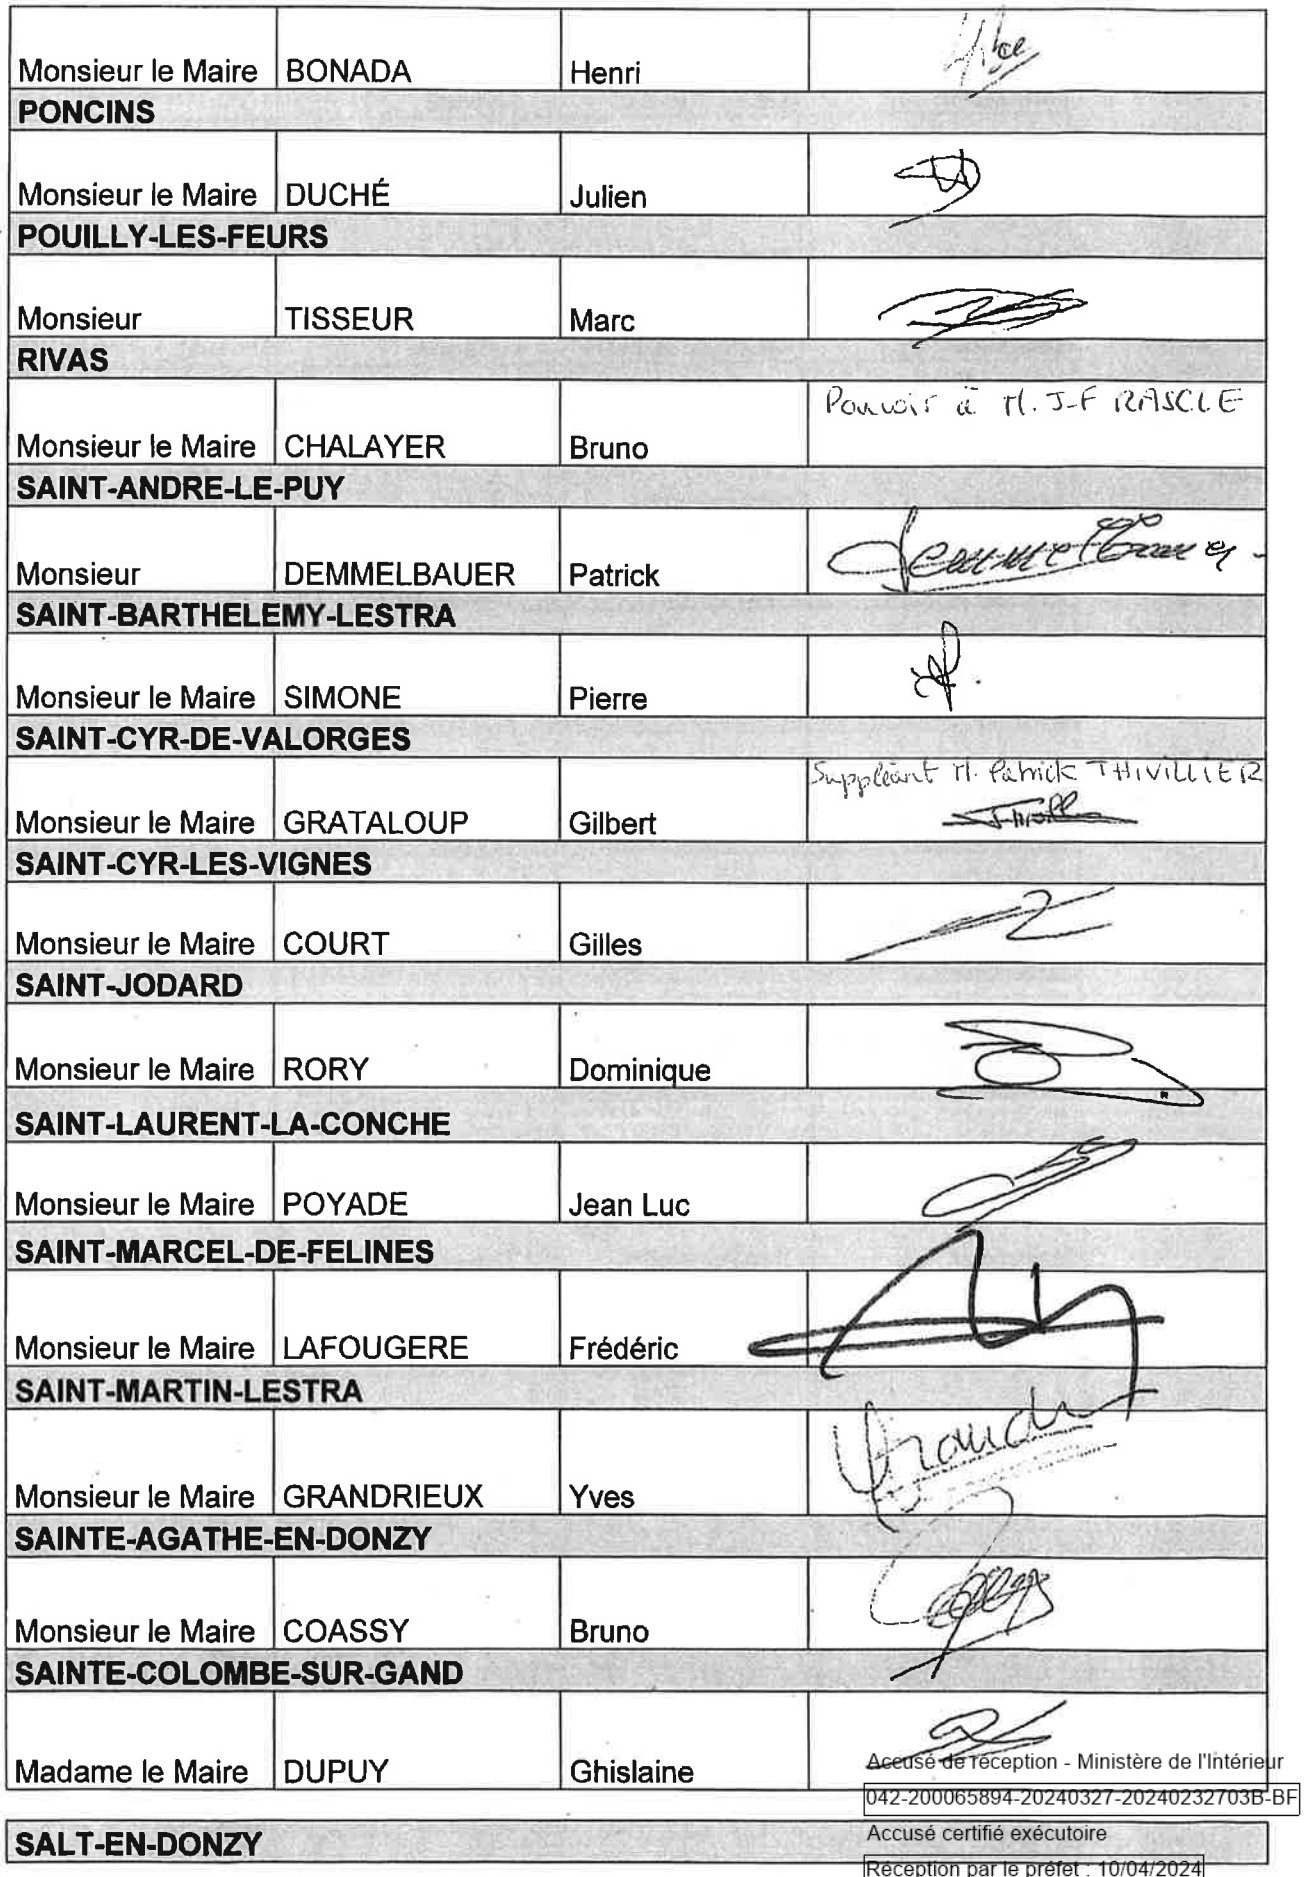 Monsieur le Maire BONADA Henri
PONCINS
Monsieur le Maire DUCHÉ Julien
POUILLY-LES-FEURS
Monsieur TISSEUR Marc
RIVAS
Pouvoir à M. J-F RASCLE
Monsieur le Maire CHALAYER Bruno
SAINT-ANDRE-LE-PUY
Monsieur DEMMELBAUER Patrick
SAINT-BARTHELEMY-LESTRA
Monsieur le Maire SIMONE Pierre
SAINT-CYR-DE-VALORGES
Suppléant M. Patrick THIVILLIER
Monsieur le Maire GRATALOUP Gilbert
SAINT-CYR-LES-VIGNES
Monsieur le Maire COURT Gilles
SAINT-JODARD
Monsieur le Maire RORY Dominique
SAINT-LAURENT-LA-CONCHE
Monsieur le Maire POYADE Jean Luc
SAINT-MARCEL-DE-FELINES
Monsieur le Maire LAFOUGERE Frédéric
SAINT-MARTIN-LESTRA
Monsieur le Maire GRANDRIEUX Yves
SAINTE-AGATHE-EN-DONZY
Monsieur le Maire COASSY Bruno
SAINTE-COLOMBE-SUR-GAND
Madame le Maire DUPUY Ghislaine
Accusé de réception - Ministère de l'Intérieur
042-200065894-20240327-20240232703B-BF
SALT-EN-DONZY
Accusé certifié exécutoire
Réception par le préfet : 10/04/2024